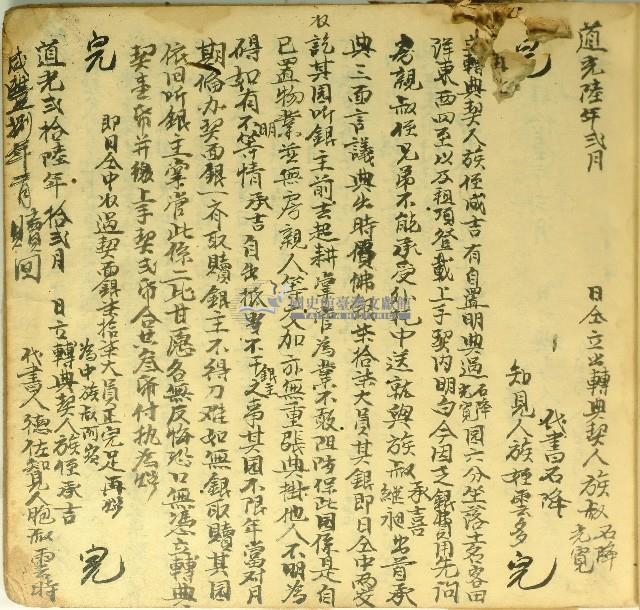 道光陸年弍月
日仝立出轉典契人族叔石降光寬
代書石降
知見人族侄雲多
完
完
立轉典契人族侄咸吉有自置明典過石降光寬園六分坐落土名客田
洋東西四至以及租項登載上手契內明白今因乏銀費用先問
房親叔侄兄弟不能承受外托中送就與族叔承喜繼昶出首承
典三面言議典出時價佛銀柒拾柒大員其銀即日仝中両交
收訖其園听銀主前去起耕掌管為業不敢阻滯保此園係是自
已置物業並無房親人等交加亦無重張典掛他人不明為
碍如有不明等情承吉自出抵當不干銀主之事其園不限年當对月
期備办契面銀一齊取贖銀主不得刁难如無銀取贖其園
依旧听銀主掌管此係二比甘愿各無反悔恐口無憑立轉典
契壹帋并繳上手契弍帋合共叁帋付执為炤
即日仝中收過契面銀柒拾柒大員正完足再炤
完
完
為中族叔阿
道光弍拾陸年拾弍月 日立轉典契人族侄承吉
代書人德佐知見人胞叔雲時
咸豐捌年 月贖回
國史館臺灣文獻館
TAIWAN HISTORICA